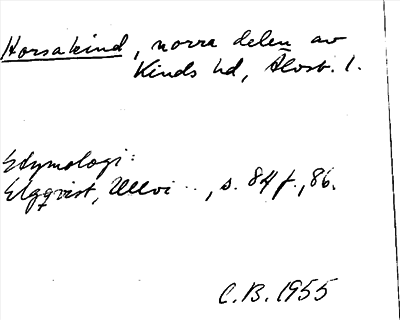 Horsakind, norra delen av
Kinds hd, Älvsb. l.
Etymologi:
Elgqvist, Ullvi.., s. 84 f., 86.
C.B. 1955